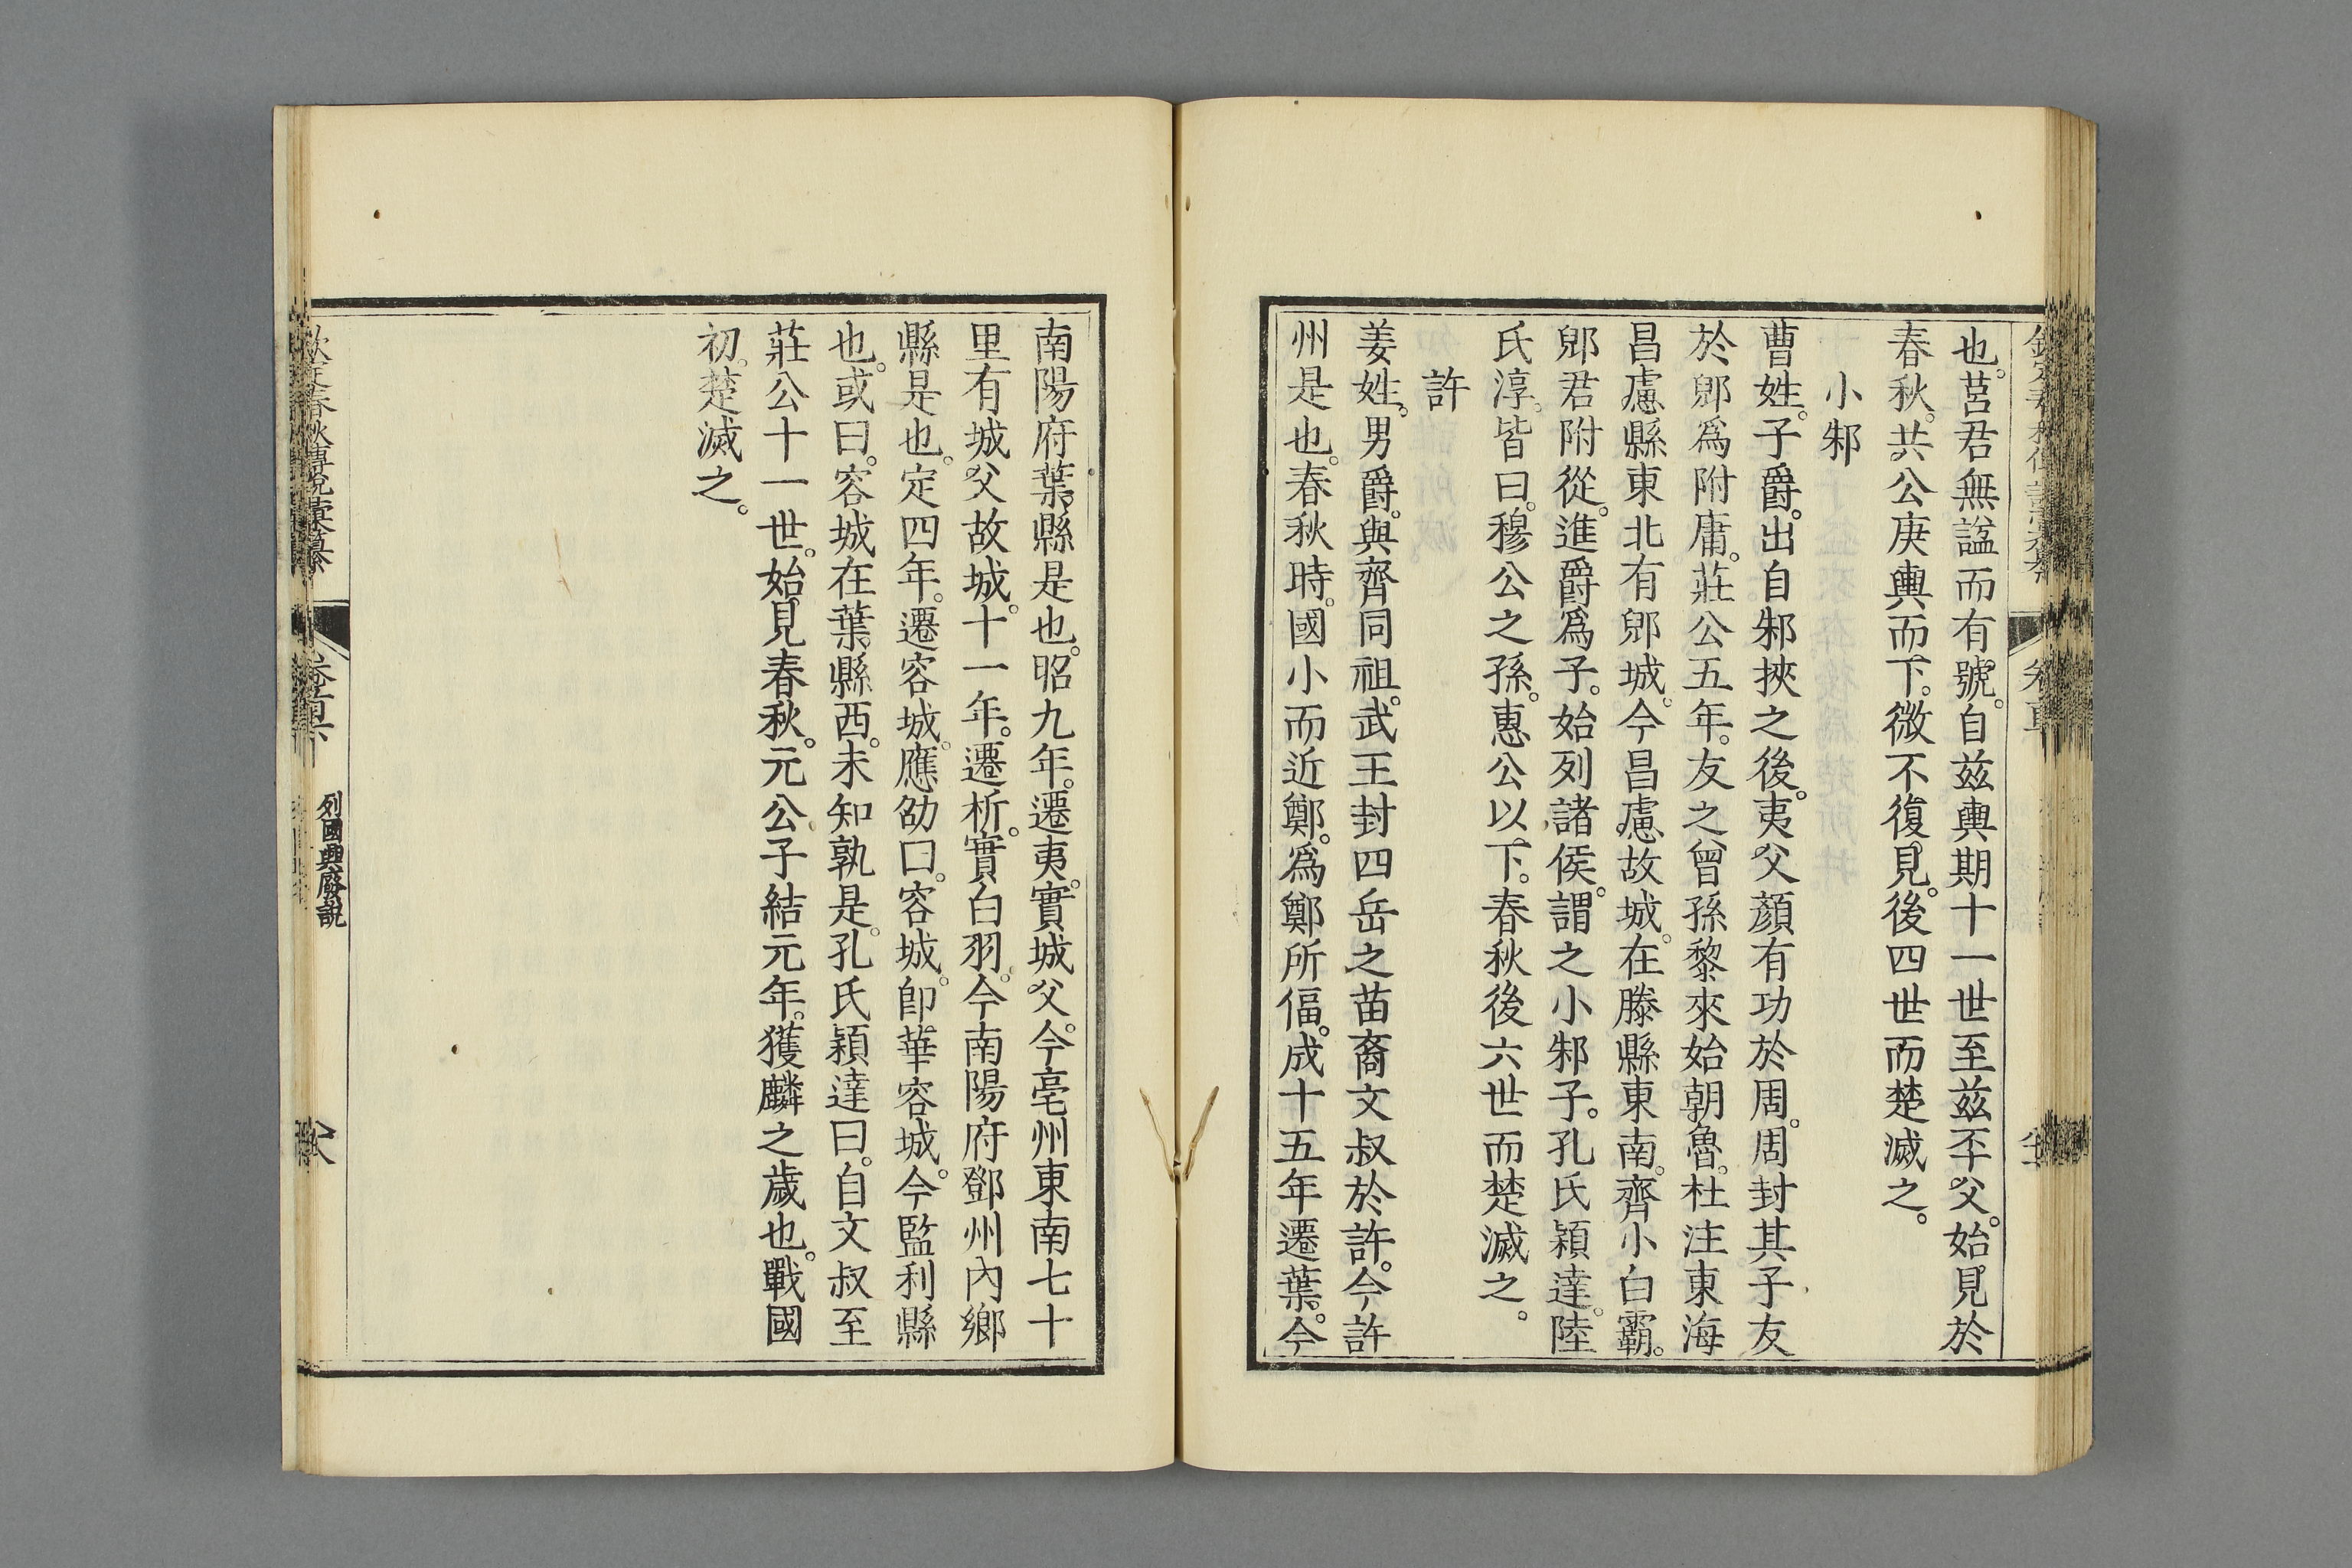 也。莒君無諡而有號。自茲輿期十一世至茲丕父。始見於
春秋。共公庚輿而下。微不復見。後四世而楚滅之。
小邾
曹姓。子爵。出自邾挾之後。夷父顏有功於周。周封其子友
於郳爲附庸。莊公五年。友之曾孫黎來始朝魯。杜注東海
昌慮縣東北有郳城。今昌慮故城。在滕縣東南。齊小白霸。
郳君附從。進爵爲子。始列諸侯。謂之小邾子。孔氏穎達。陸
氏淳。皆曰。穆公之孫。惠公以下。春秋後六世而楚滅之。
許
姜姓。男爵。與齊同祖。武王封四岳之苗裔文叔於許。今許
州是也。春秋時。國小而近鄭。爲鄭所偪。成十五年遷葉。今
南陽府葉縣是也。昭九年。遷夷。實城父。今亳州東南七十
里有城父故城。十一年。遷析。實白羽。今南陽府鄧州內鄉
縣是也。定四年。遷容城。應劭曰。容城。卽華容城。今監利縣
也。或曰。容城在葉縣西。未知孰是。孔氏穎達曰。自文叔至
莊公十一世。始見春秋。元公子結元年。獲麟之歲也。戰國
初。楚滅之。
欽定春秋傳說彙纂
列國興廢說